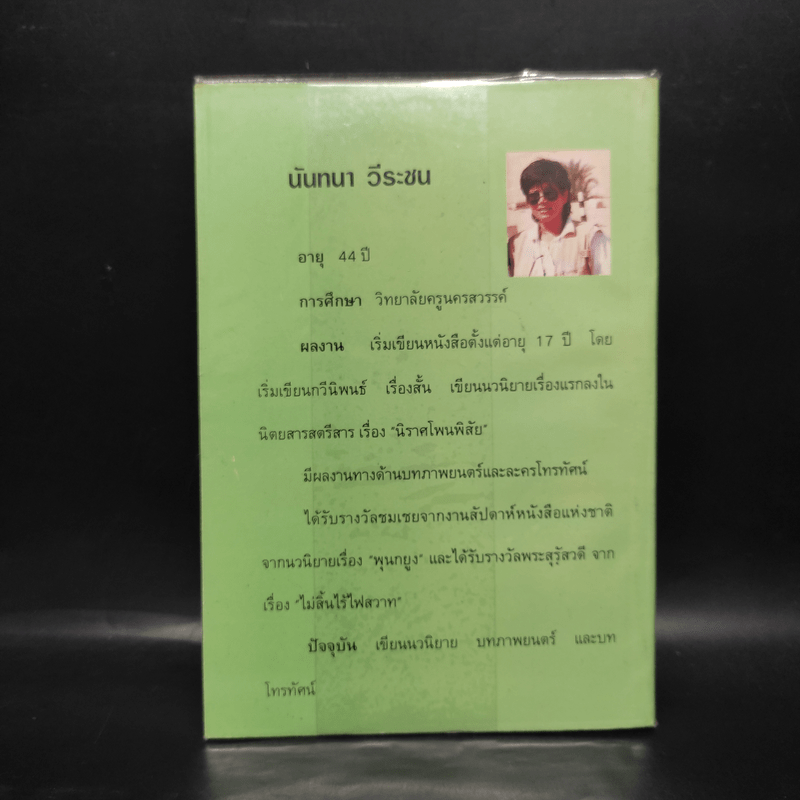 นันทนา วีระชน
อายุ 44 ปี
การศึกษา วิทยาลัยครูนครสวรรค์
ผลงาน เริ่มเขียนหนังสือตั้งแต่อายุ 17 ปี โดย
เริ่มเขียนกวีนิพนธ์ เรื่องสั้น เขียนนวนิยายเรื่องแรกลงใน
นิตยสารสตรีสาร เรื่อง "นิราศโพนพิสัย"
มีผลงานทางด้านบทภาพยนตร์และละครโทรทัศน์
ได้รับรางวัลชมเชยจากงานสัปดาห์หนังสือแห่งชาติ
จากนวนิยายเรื่อง "พุนกยูง" และได้รับรางวัลพระสุรัสวดี จาก
เรื่อง "ไม่สิ้นไร้ไฟสวาท"
ปัจจุบัน เขียนนวนิยาย บทภาพยนตร์ และบท
โทรทัศน์